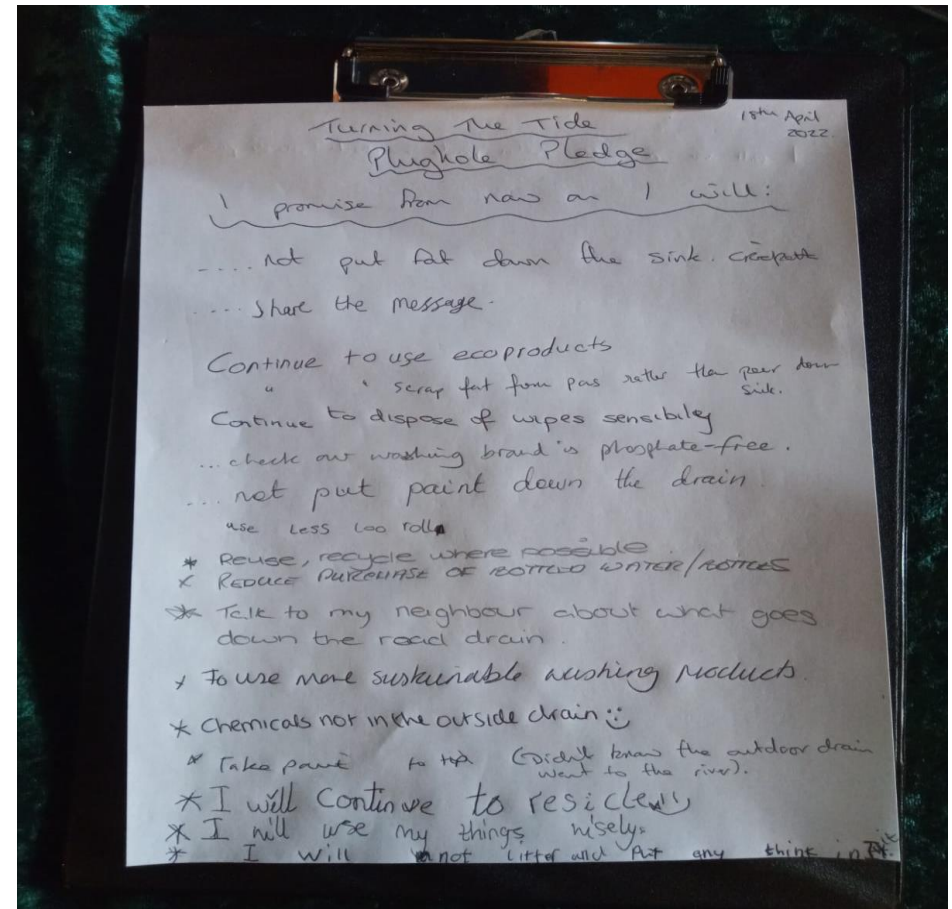 Turning The Tide
18th April
2022.
Plughole Pledge
I promise from now on I will:
.... not put fat down the sink.
.... Share the message.
Continue to use ecoproducts
" " scrap fat from pas rather than pour down
sink.
Continue to dispose of wipes sensibiley
... check our washing brand is phosphate-free.
... not put paint down the drain.
use less loo roll
* Reuse, recycle where possible
x REDUCE PURCHASE OF BOTTLED WATER/BOTTLES
* Talk to my neighbour about what goes
down the road drain.
x To use more sustainable washing products.
* Chemicals not in the outside drain :)
* Take paint to tip (Didn't know the outdoor drain
went to the river).
* I will continue to resicle
* I will use my things wisely.
* I will not litter and put any think in